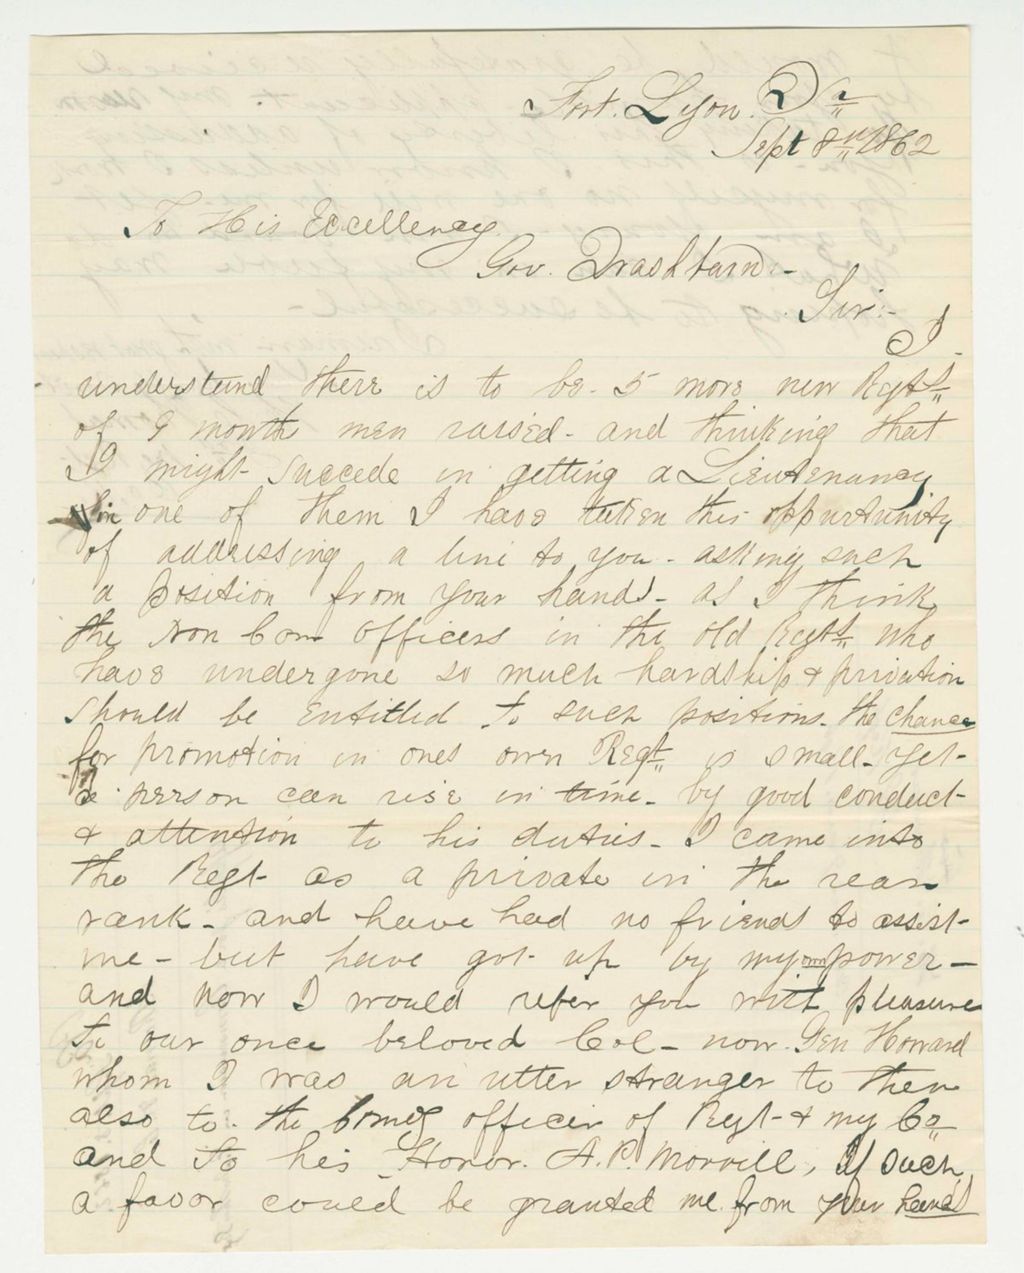 Fort. Lyon.
Sept 8th 1862
To His Excellency
Gov. Washburn -
Sir:-
I
understand there is to be - 5 more new Regts
of 9 month men raised - and thinking that
I might succede in getting a Lieutenancy
in one of them I have taken this oppurtunity
of addressing a line to you - asking such
a Position from your hands - as I think
the Non Com officers in the old Regts who
have undergone so much hardship & privation
should be Entitled to such positions. The chance
for promotion in ones own Regt is small - yet -
a person can rise in time - by good conduct -
& attention to his duties - I came into
the Regt - as a private in the rear
rank - and have had no friends to assist -
me - but have got - up by my own power -
and now I would refer you with pleasure
to our once beloved Col - now Gen Howard
whom I was an utter stranger to then
also to the Comdg officer of Regt - & my Co
and to his Honor. A. P. Morrill, If such
a favor could be granted me from your hands